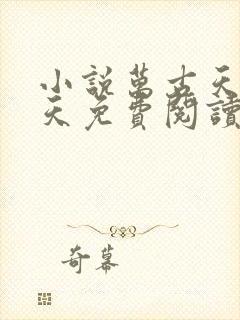 小說萬古天
天免費閱讀
奇幕